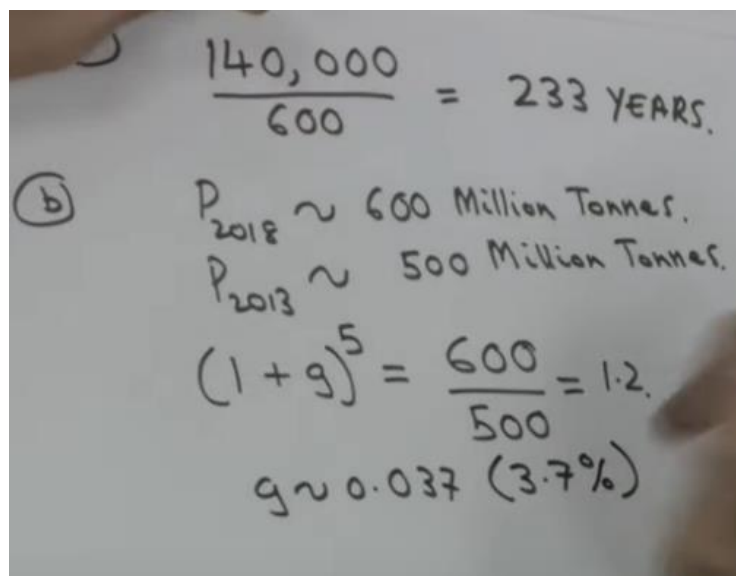 )
140,000 / 600 = 233 YEARS.
(b) P2018 ~ 600 Million Tonnes.
P2013 ~ 500 Million Tonnes.
(1 + g)^5 = 600 / 500 = 1.2.
g ~ 0.037 (3.7%)